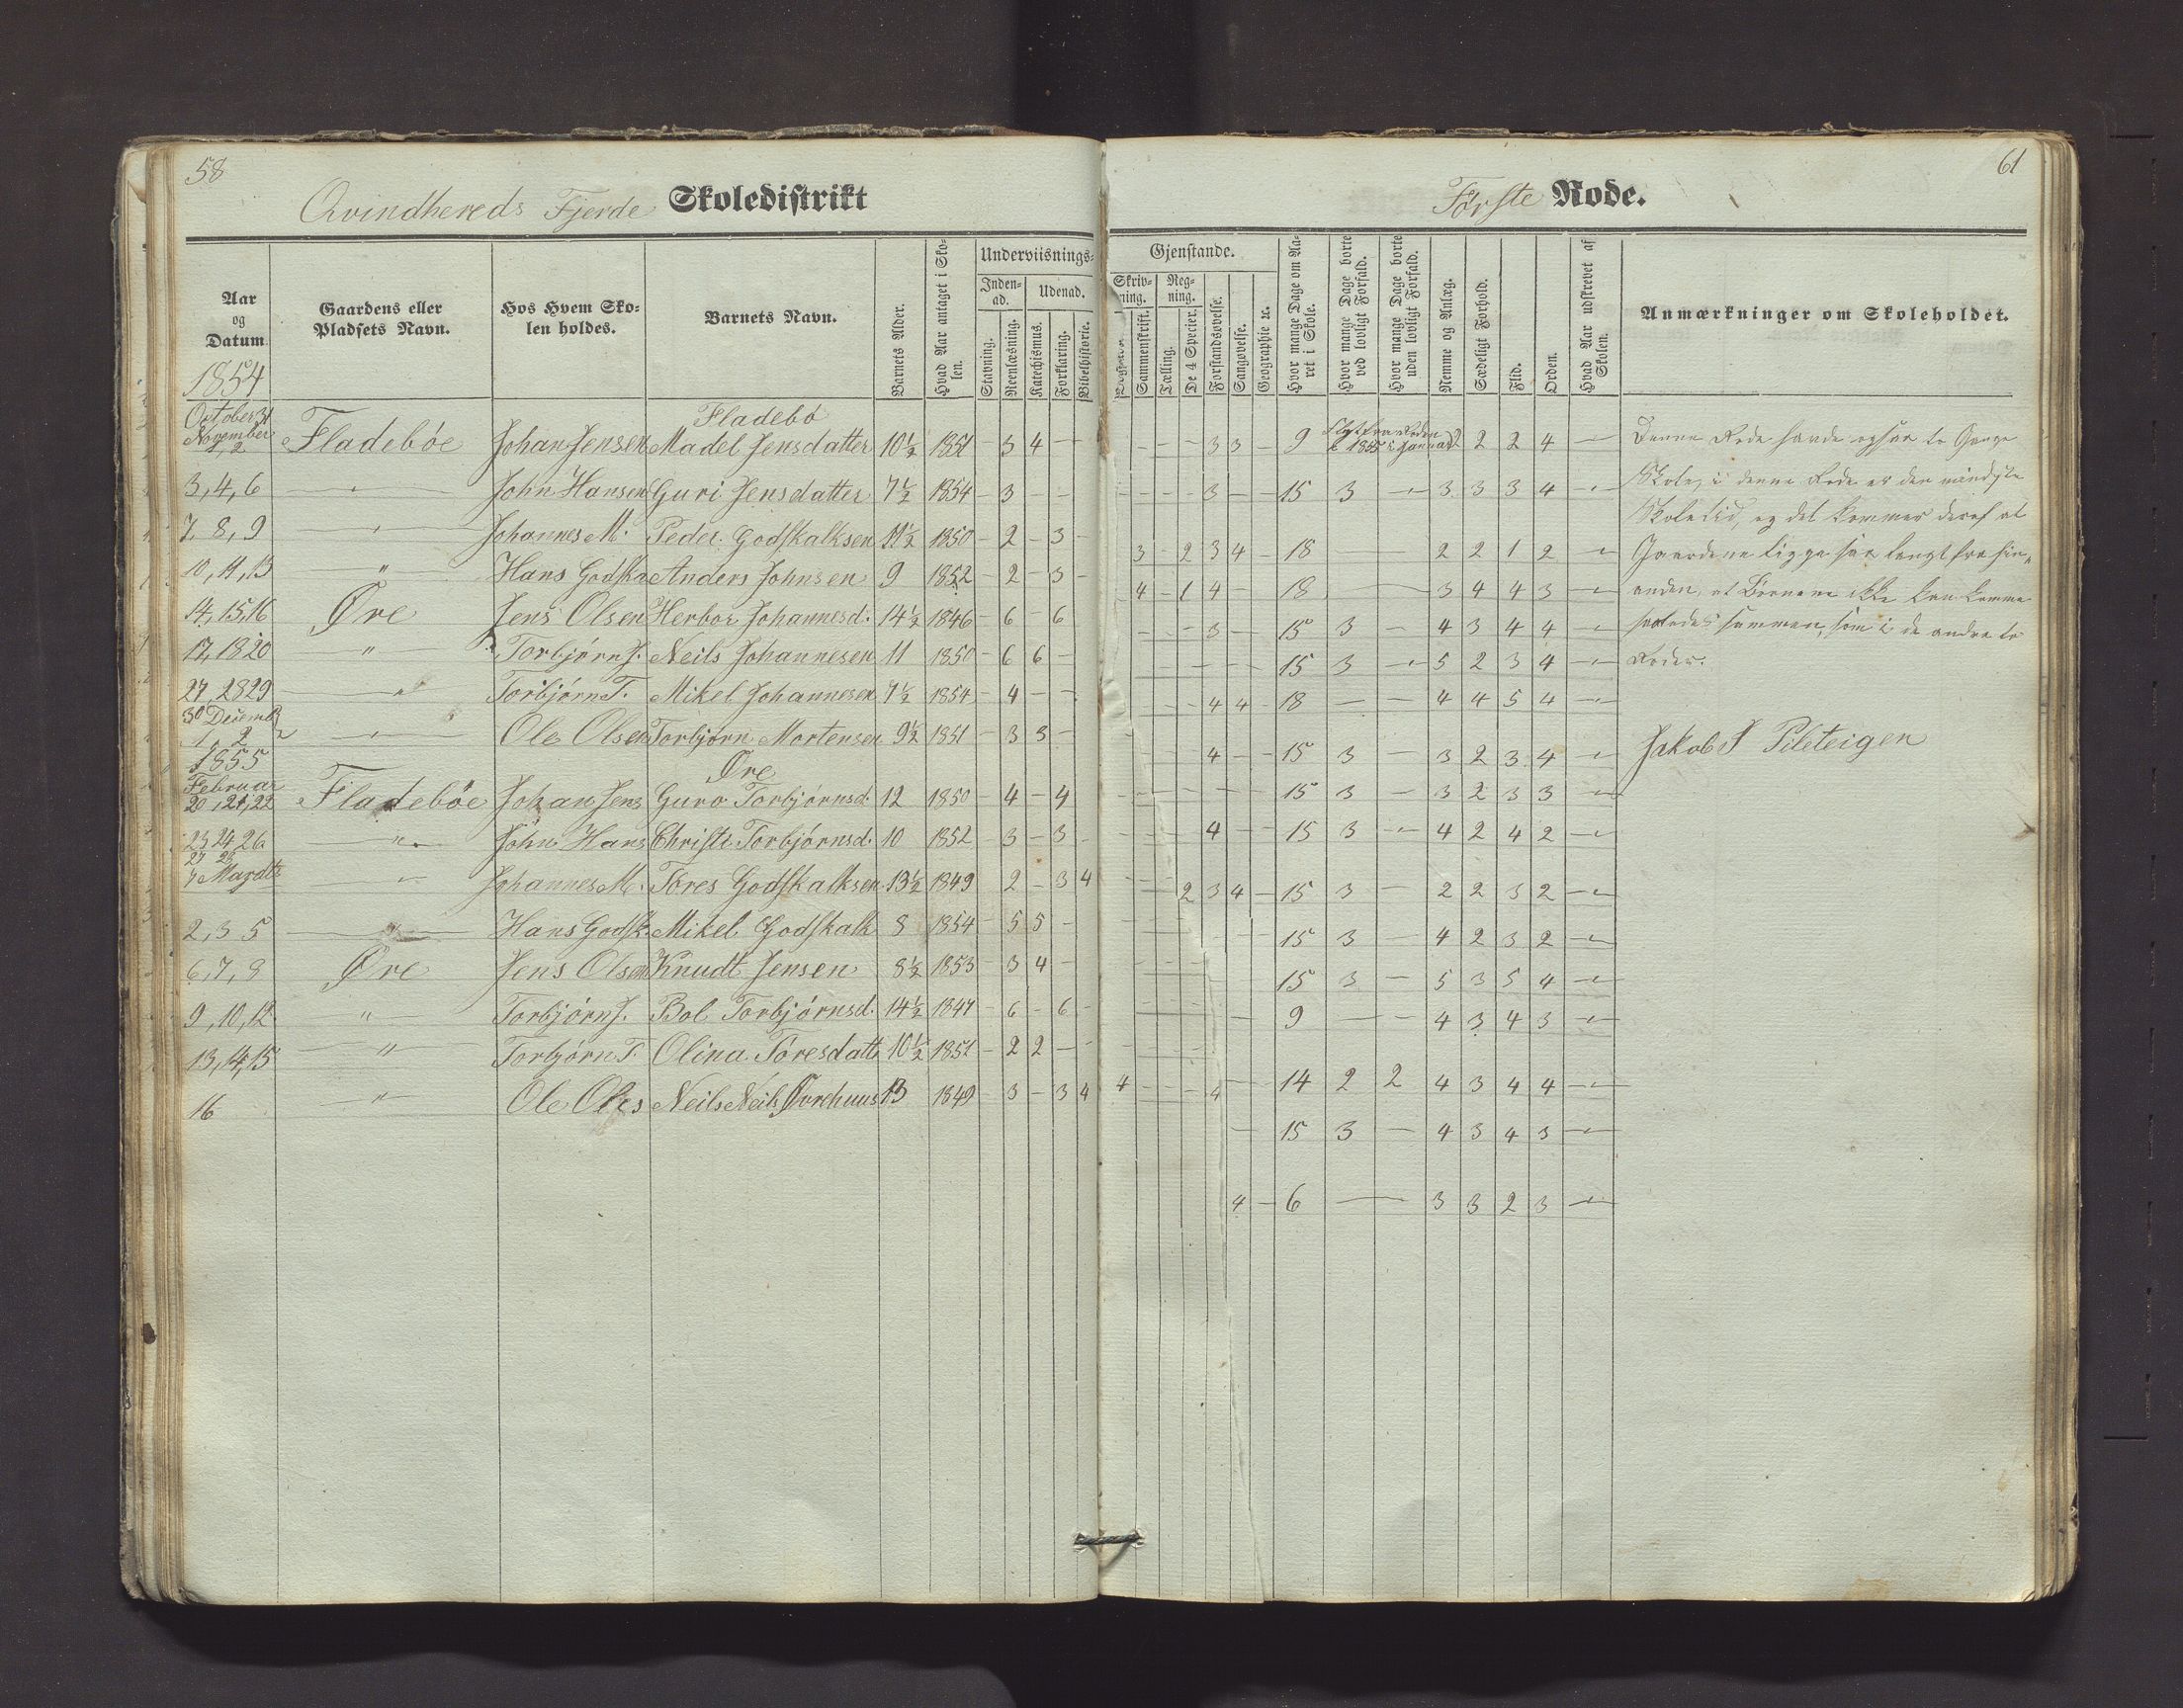 58
Qvindhereds Fjerde Skoledistrikt
Aar og Datum
Gaardens eller Pladsets Navn.
Hos Hvem Skolen holdes.
Barnets Navn.
Barnets Alder.
Hvad Aar antaget i Skolen.
Underviisnings-
Indenad. Udenad.
Stavning. Reenlæsning. Katechismus. Forklaring. Bibelhistorie.
1854
Fladebö
October 31 November 1, 2 Fladebøe Johan Jensen Madel Jensdatter 10½ 1851 - 3 4 - -
3, 4, 6 — " — John Hansen Guri Jensdatter 7½ 1854 - 3 - -
7, 8, 9 — " — Johannes M. Peder Godskalksen 11½ 1850 - 2 - 3 -
10, 11, 13 " Hans Godska Anders Johnsen 9 1852 - 2 - 3 -
14, 15, 16 Øre Jens Olsen Herbor Johannesd: 14½ 1846 - 6 - 6
17, 18 20 " Torbjørn J. Neils Johannesen 11 1850 - 6 6 -
27, 28 29 — " — Torbjørn T. Mikel Johannesen 7½ 1854 - 4 - -
30 Decemb 1, 2 — " — Ole Olsen Torbjørn Mortensen 9½ 1851 - 3 3 -
1855
Øre
Februar 20, 21, 22 Fladebøe Johan Jens Guro Torbjørnsd. 12 1850 - 4 - 4
23 24 26 — " — John Hans Christi Torbjørnsd. 10 1852 - 3 - 3 -
27 28 Mardts — " — Johannes M. Tøres Godskalksen 13½ 1849 2 - 3 4
2, 3 5 — " — Hans Godsk. Mikel Godskalk 8 1854 - 5 5 -
6, 7, 8 Øre Jens Olsen Knudt Jensen 8½ 1853 - 3 4 -
9, 10, 12 " Torbjørn J. Bol Torbjørnsd. 14½ 1847 - 6 - 6 -
13, 14, 15 — " — Torbjørn T. Olina Tøresdatt 10½ 1851 - 2 2 -
16 — " — Ole Oles Neils Neils 13 1849 - 3 - 3 4
61
Første Rode.
Gjenstande.
Skrivning. Regning.
Sammenskrift. Tælling. De 4 Specier. Forstandsøvelse. Sangøvelse. Geographie &c.
Hvor mange Dage om Aaret i Skole.
Hvor mange Dage borte ved lovligt Forfald.
Hvor mange Dage borte uden lovligt Forfald.
Nemme og Anlæg.
Sædeligt Forhold.
Flid.
Orden.
Hvad Aar udskrevet af Skolen.
Anmærkninger om Skoleholdet.
- - - 3 3 - 9 Flyt fra Roden i 1855 i Januar 2 2 2 4 —
- - - - 3 - - 15 3 — 3 3 3 4 —
3 - 2 3 4 - 18 — — 2 2 1 2 —
4 - 1 4 - 18 — 3 4 4 3 —
- - - 3 - 15 3 — 4 3 4 4 —
- - - - - 15 3 — 5 2 3 4 —
- - 4 4 - 18 — — 4 4 5 4 —
- - 4 - - 15 3 — 3 2 3 4 —
- - - - - 15 3 — 3 2 3 3 —
- - 4 - - 15 3 — 4 2 4 2 —
- - 2 3 4 - 15 3 — 2 2 3 2 —
- - - - - 15 3 — 4 2 3 2 —
- - - - - 15 3 — 5 3 5 4 —
- - - - - 9 — — 4 3 4 3 —
4 - - - 4 - - 14 2 2 4 3 4 4 —
- 15 3 — 4 3 4 3 —
4 - 6 — 3 3 2 3 —
Denne Rode havde ogsaa to Gange
Skole, i denne Rode er den mindste
Skoletid, og det kommer deraf at
Gaardene ligge saa langt fra hin-
anden, at Børnene ikke kan komme
saaledes sammen, som i de andre to
Roder.
Jakob J Pileteigen